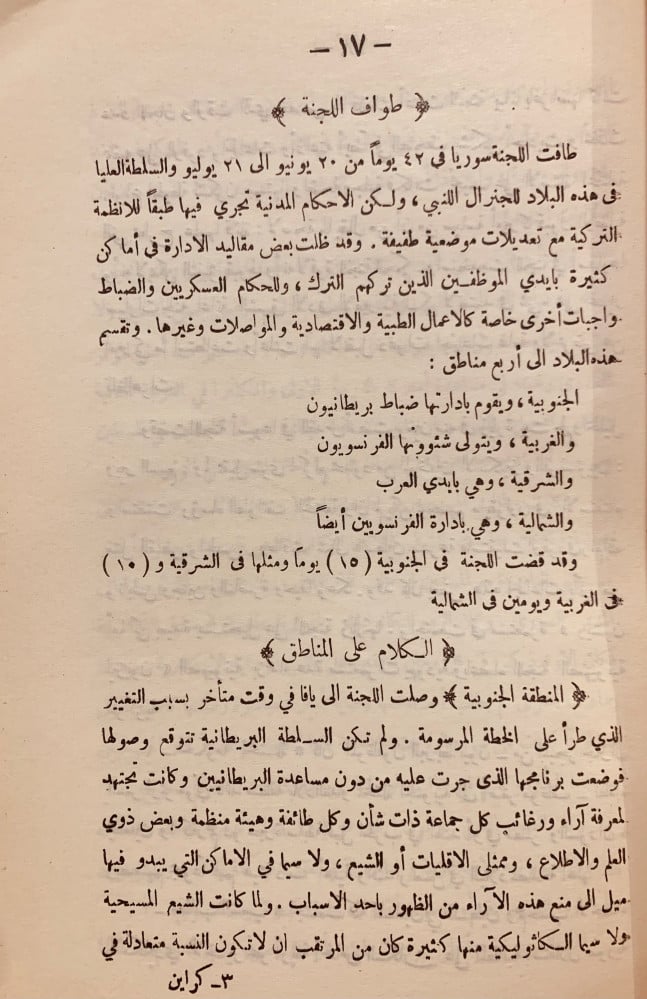 — ١٧ —
﴿ طواف اللجنة ﴾
طافت اللجنة سوريا في ٤٢ يوماً من ٢٠ يونيو الى ٢١ يوليو والسلطة العليا
في هذه البلاد للجنرال اللنبي ، ولكن الاحكام المدنية تجري فيها طبقاً للانظمة
التركية مع تعديلات موضعية طفيفة . وقد ظلت بعض مقاليد الادارة في أماكن
كثيرة بايدي الموظفين الذين تركهم الترك ، وللحكام العسكريين والضباط
واجبات أخرى خاصة كالاعمال الطبية والاقتصادية والمواصلات وغيرها . وتقسم
هذه البلاد الى أربع مناطق :
الجنوبية ، ويقوم بادارتها ضباط بريطانيون
والغربية ، ويتولى شئوونها الفرنسويون
والشرقية ، وهي بايدي العرب
والشمالية ، وهي بادارة الفرنسويين أيضاً
وقد قضت اللجنة في الجنوبية (١٥) يوماً ومثلها في الشرقية و (١٠)
في الغربية ويومين في الشمالية
﴿ الكلام على المناطق ﴾
﴿ المنطقة الجنوبية ﴾ وصلت اللجنة الى يافا في وقت متأخر بسبب التغيير
الذي طرأ على الخطة المرسومة . ولم تكن السلطة البريطانية تتوقع وصولها
فوضعت برنامجها الذى جرت عليه من دون مساعدة البريطانيين وكانت تجتهد
لمعرفة آراء ورغائب كل جماعة ذات شأن وكل طائفة وهيئة منظمة وبعض ذوي
العلم والاطلاع ، وممثلى الاقليات أو الشيع ، ولا سيما في الاماكن التي يبدو فيها
ميل الى منع هذه الآراء من الظهور باحد الاسباب . ولما كانت الشيع المسيحية
ولا سيما الكاثوليكية منها كثيرة كان من المرتقب ان لا تكون النسبة متعادلة في
٣ــ كراين